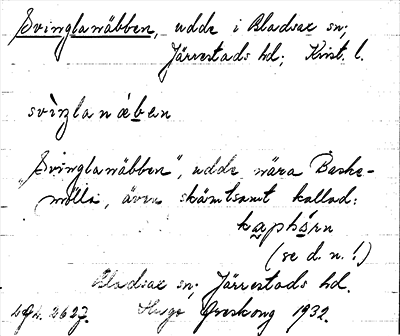 Svinglanäbben, udde i Bladsax sn;
Järrestads hd; Krist. l.
svìŋlanǽben
"Svinglanäbben", udde nära Baske-
mölla, även skämtsamt kallad:
kaphórn
(se d. n.!)
Bladsax sn; Järrestads hd.
2627. Hugo Areskoug 1932.